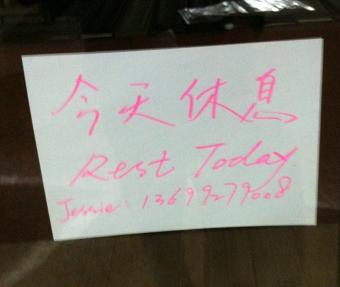 今天休息
Rest Today.
Jessie: 13699279008